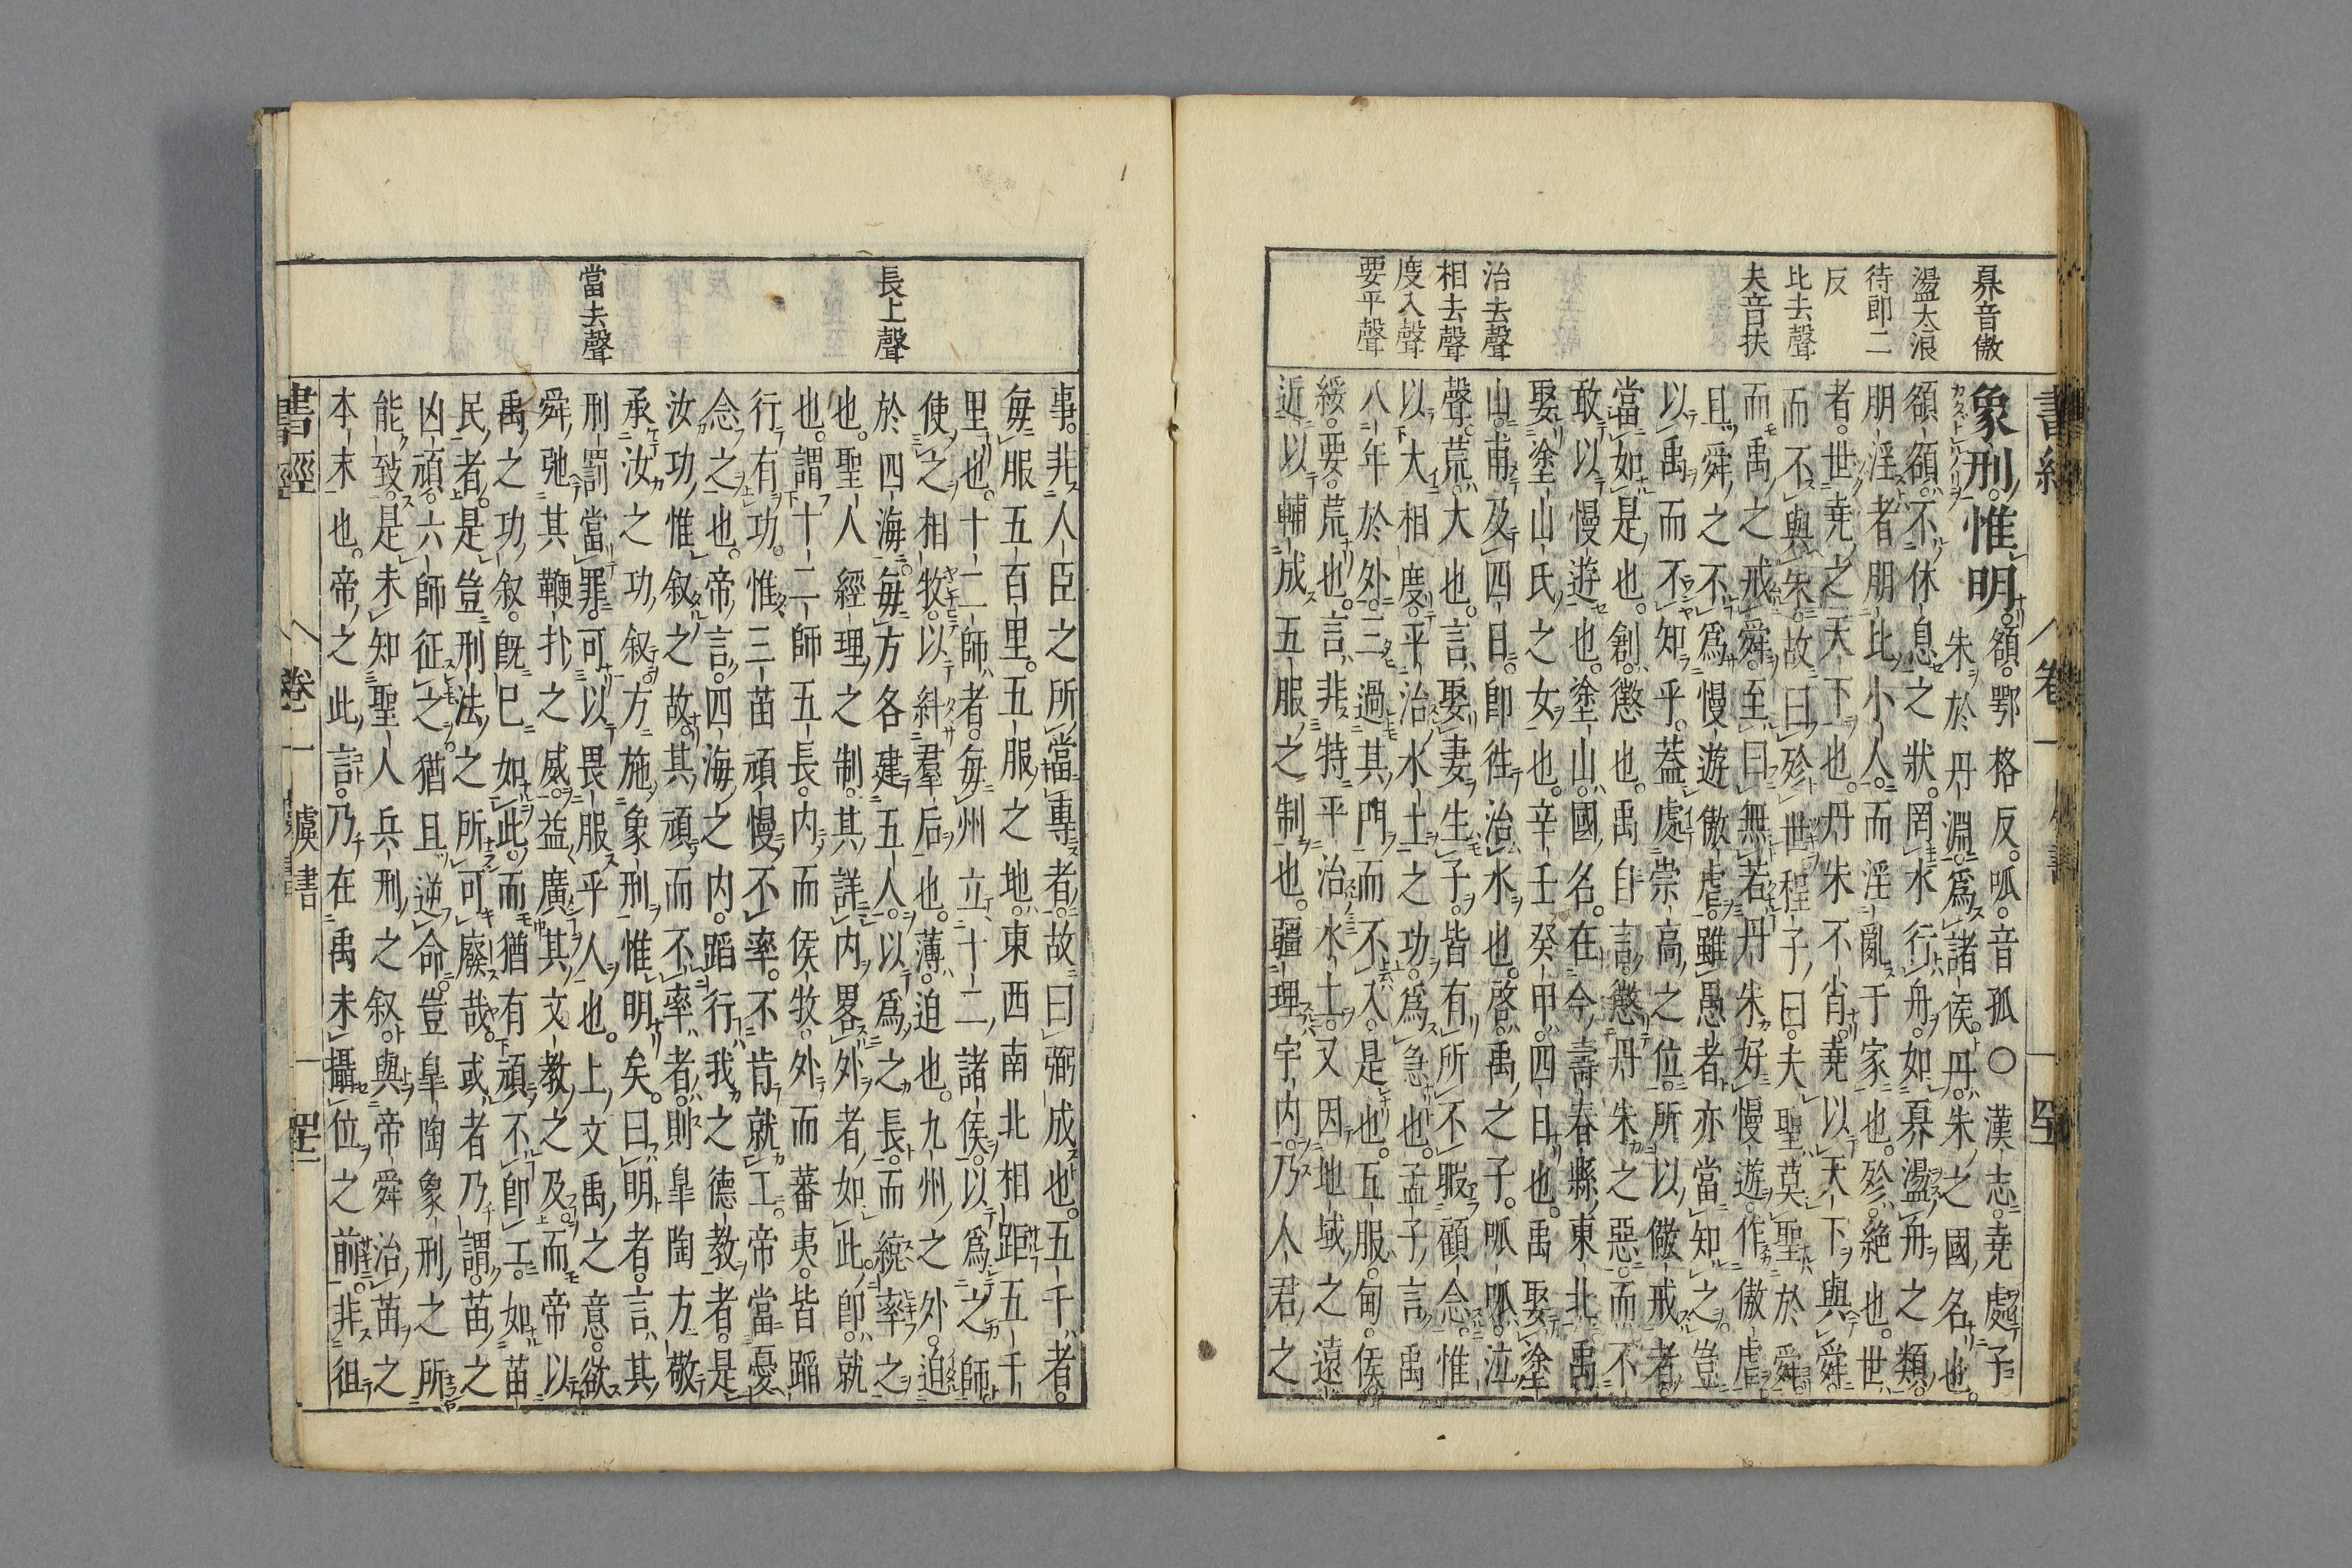 書經
卷一
虞書
奡音傲
盪太浪
待郎二
反
比去聲
夫音扶
治去聲
相去聲
度入聲
要平聲
象刑惟明。額。鄂格反。呱。音孤○漢志。堯處子
朱於丹淵。爲諸侯。丹。朱之國名也。
額額。不休息之狀。罔水行舟。如奡盪舟之類。
朋淫者朋比小人。而淫亂于家也。殄。絶也。世
者。世堯之天下也。丹朱不肖。堯以天下與舜。
而不與朱。故曰殄世程子曰。夫聖莫聖於舜。
而禹之戒舜。至曰無若丹朱好慢遊。作傲虐。
且舜之不爲慢遊傲虐。雖愚者亦當知之。豈
以禹而不知乎。蓋處崇高之位。所以儆戒者。
當如是也。創。懲也。禹自言。懲丹朱之惡。而不
敢以慢遊也。塗山。國名。在今壽春縣東北。禹
娶塗山氏之女也。辛壬癸甲。四日也。禹娶塗
山。甫及四日。卽往治水也。啓。禹之子。呱呱。泣
聲。荒。大也。言娶妻生子。皆有所不暇顧念。惟
以大相度。平治水土之功。爲急也。孟子言禹
八年於外。三過其門而不入。是也。五服。甸。侯。
綏。要。荒也。言非特平治水土。又因地域之遠
近以輔成五服之制也。疆理宇内。乃人君之
長上聲
當去聲
事。非人臣之所當專者。故曰弼成也。五千者。
每服五百里。五服之地。東西南北相距五千
里也。十二師者。每州立十二諸侯。以爲之師
使之相牧。以糾羣后也。薄。迫也。九州之外。迫
於四海。每方各建五人。以爲之長。而統率之
也。聖人經理之制。其詳内畧外者如此。卽。就
也。謂十二師五長。内而侯牧。外而蕃夷。皆蹈
行有功。惟三苗頑慢不率。不肯就工。帝當憂
念之也。帝言。四海之内。蹈行我之德教者。是
汝功惟叙之故。其頑而不率者。則皐陶方敬
承汝之功叙。方施象刑惟明矣。曰明者。言其
刑罰當罪。可以畏服乎人也。上文禹之意。欲
舜弛其鞭扑之威。益廣其文教之及。而帝以
禹之功叙。旣已如此。而猶有頑不卽工。如苗
民者。是豈刑法之所可廢哉。或者乃謂。苗之
凶頑。六師征之。猶且逆命。豈皐陶象刑之所
能致。是未知聖人兵刑之叙。與帝舜治苗之
本末也。帝之此言。乃在禹未攝位之前。非徂
書經
卷一
虞書